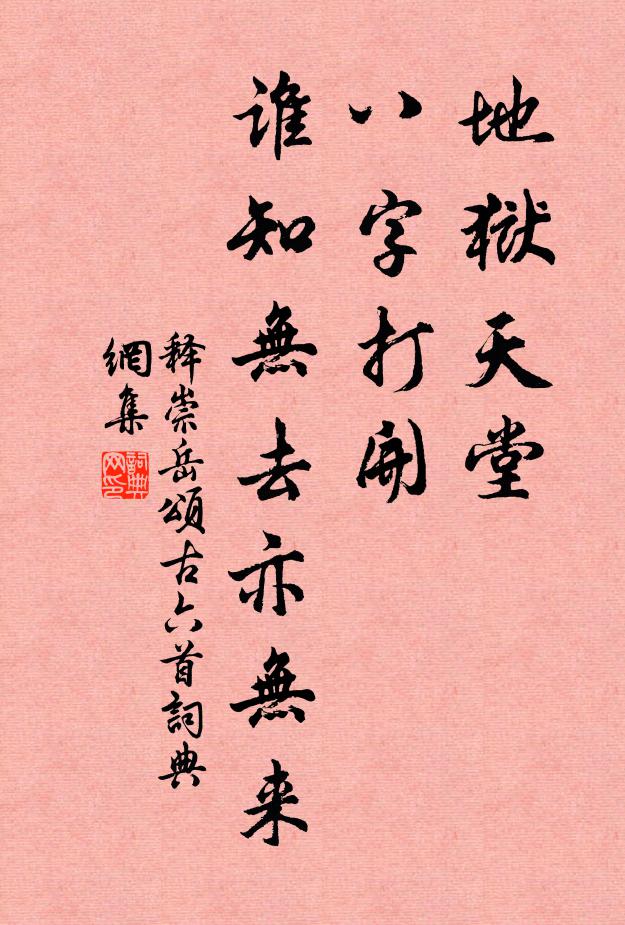 地獄天堂
八字打開
誰知無去亦無来
释崇岳頌古六首詞典
網集
詞典网印